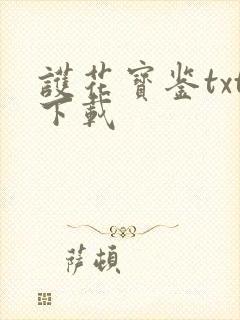 護花寶鉴txt
下載
薩頓